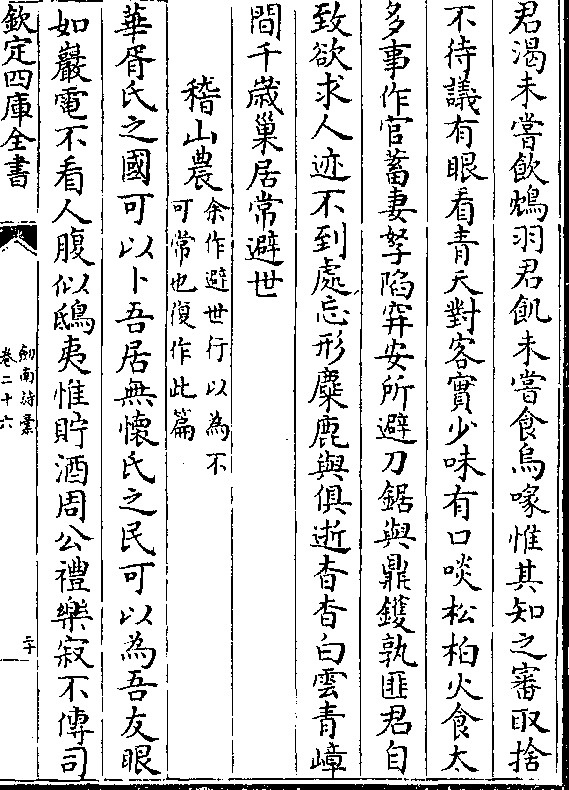 君渴未嘗飲鴆羽君飢未嘗食烏喙惟其知之審取捨
不待議有眼看青天對客實少味有口啖松柏火食太
多事作官蓄妻孥陷穽安所避刀鋸與鼎鑊孰匪君自
致欲求人迹不到處忘形麋鹿與俱逝杳杳白雲青嶂
間千歳巢居常避世
稽山農余作避世行以為不
可常也復作此篇
華胥氏之國可以卜吾居無懷氏之民可以為吾友眼
如巖電不看人腹似鴟夷惟貯酒周公禮樂寂不傳司
欽定四庫全書
劍南詩稾
卷二十六
二十